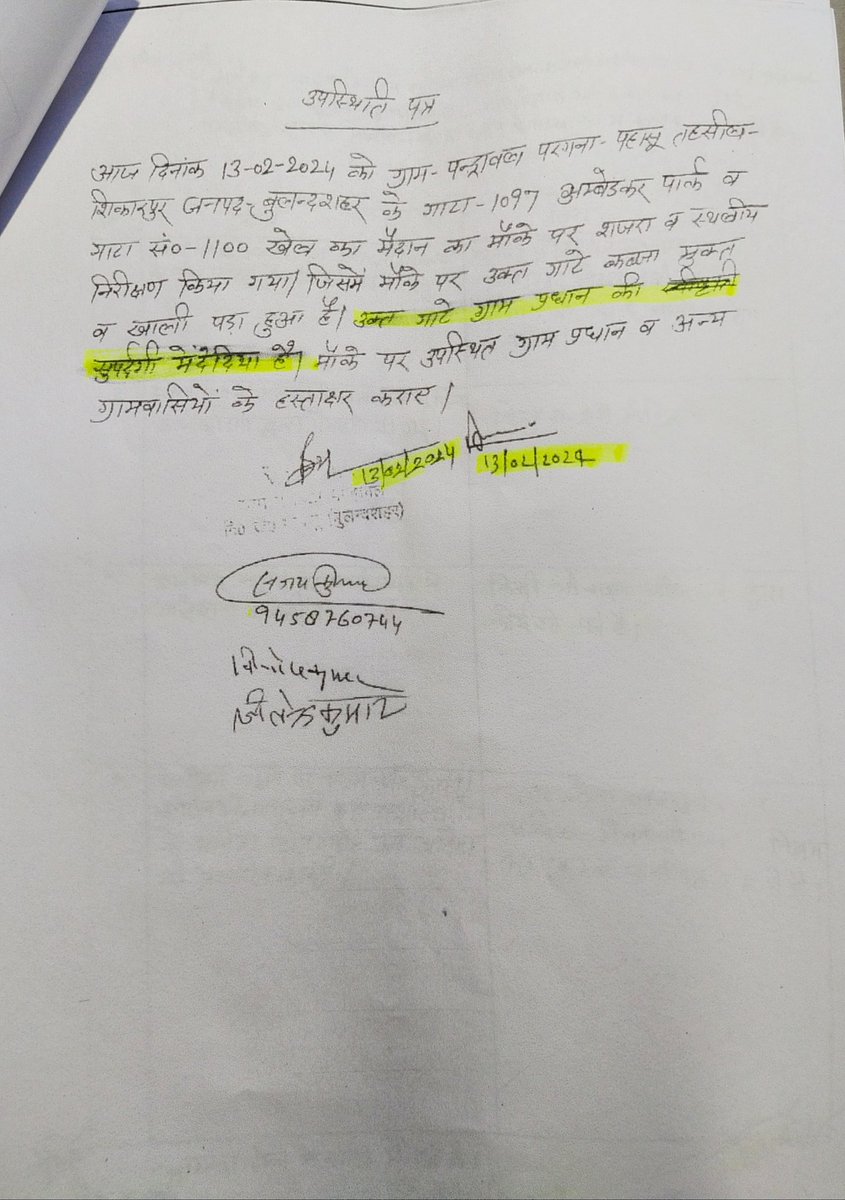 उपस्थिति पत्र
आज दिनांक 13-02-2024 को ग्राम-पन्ड्रावल परगना-पहासू तहसील-
शिकारपुर जनपद-बुलन्दशहर के गाटा-1097 अम्बेडकर पार्क व
गाटा सं०-1100 खेल का मैदान का मौके पर शजरा व स्थलीय
निरीक्षण किया गया। जिसमें मौके पर उक्त गाटे कब्जा मुक्त
व खाली पड़ा हुआ है। उक्त गाटे ग्राम प्रधान की
सुपर्दगी में दे दिया है। मौके पर उपस्थित ग्राम प्रधान व अन्य
ग्रामवासियों के हस्ताक्षर कराए।
13/02/2024 13/02/2024
(बुलन्दशहर)
9458760744
जीतेन्द्र कुमार